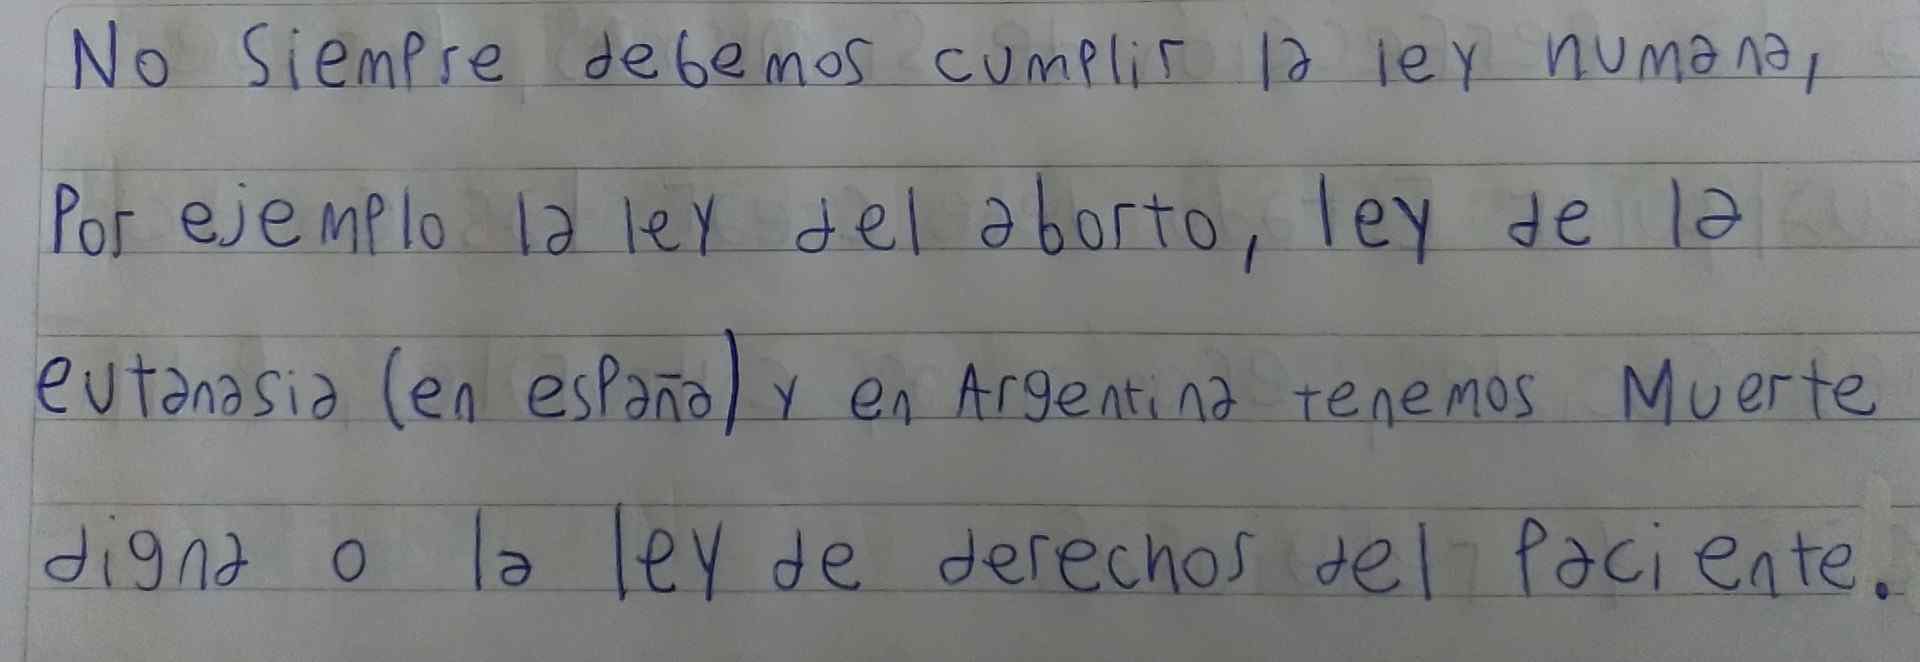 No Siempre debemos cumplir la ley humana,
Por ejemplo la ley del aborto, ley de la
eutanasia (en españa) y en Argentina tenemos Muerte
digna o la ley de derechos del Paciente.